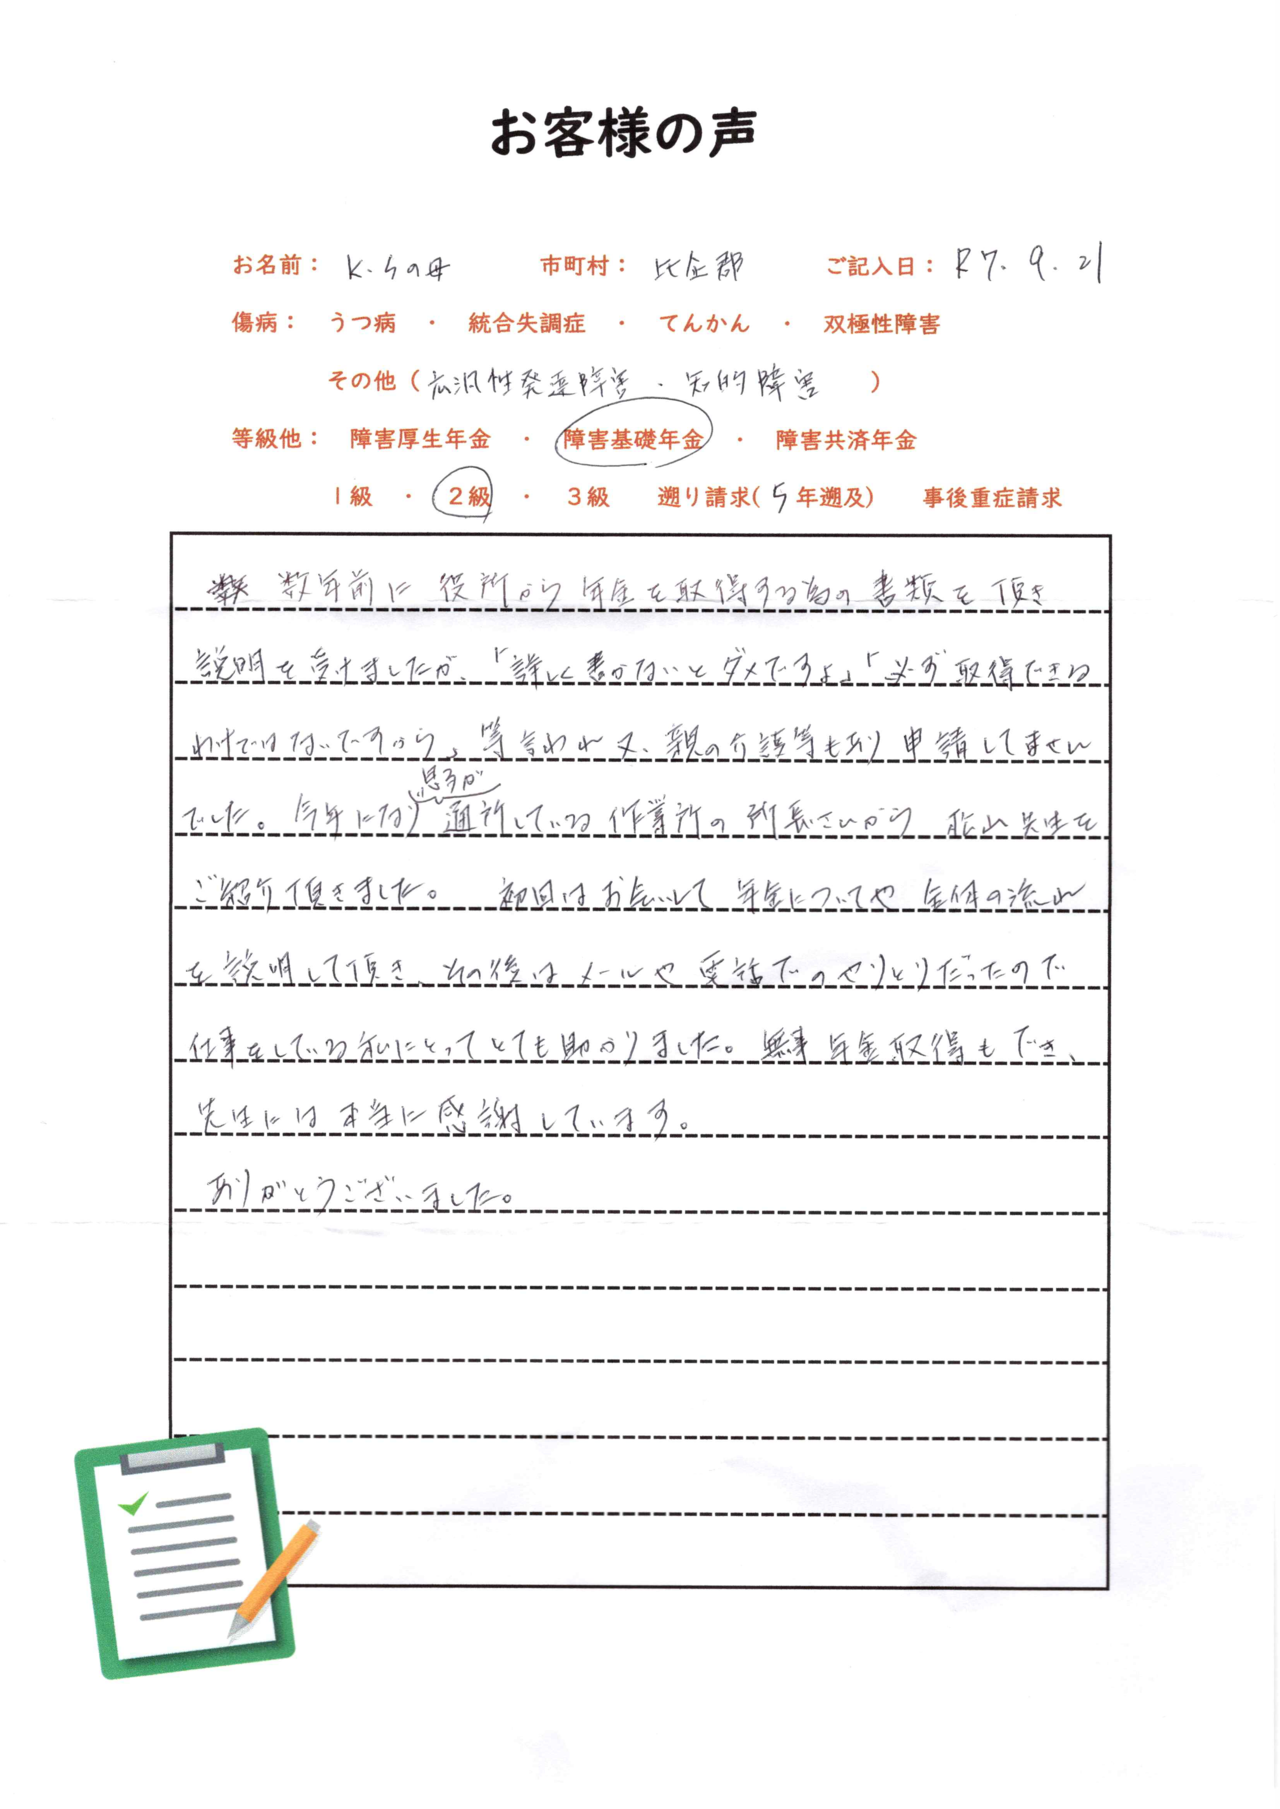 お客様の声
お名前： K.Sの母 市町村： 比企郡 ご記入日： R7.9.21
傷病： うつ病 ・ 統合失調症 ・ てんかん ・ 双極性障害
その他（広汎性発達障害・知的障害）
等級他： 障害厚生年金 ・ 障害基礎年金 ・ 障害共済年金
1級 ・ 2級 ・ 3級 遡り請求(5年遡及) 事後重症請求
数年前に役所から年金を取得する為の書類を頂き
説明を受けましたが、「詳しく書かないとダメですよ」「必ず取得できる
わけではないですから」等言われ又、親の介護等もあり申請してません
でした。今年になり息子が通所している作業所の所長さんから松山先生を
ご紹介頂きました。 初回はお会いして年金についてや全体の流れ
を説明して頂き、その後はメールや電話でのやりとりだったので
仕事をしている私にとってとても助かりました。無事年金取得もでき、
先生には本当に感謝しています。
ありがとうございました。